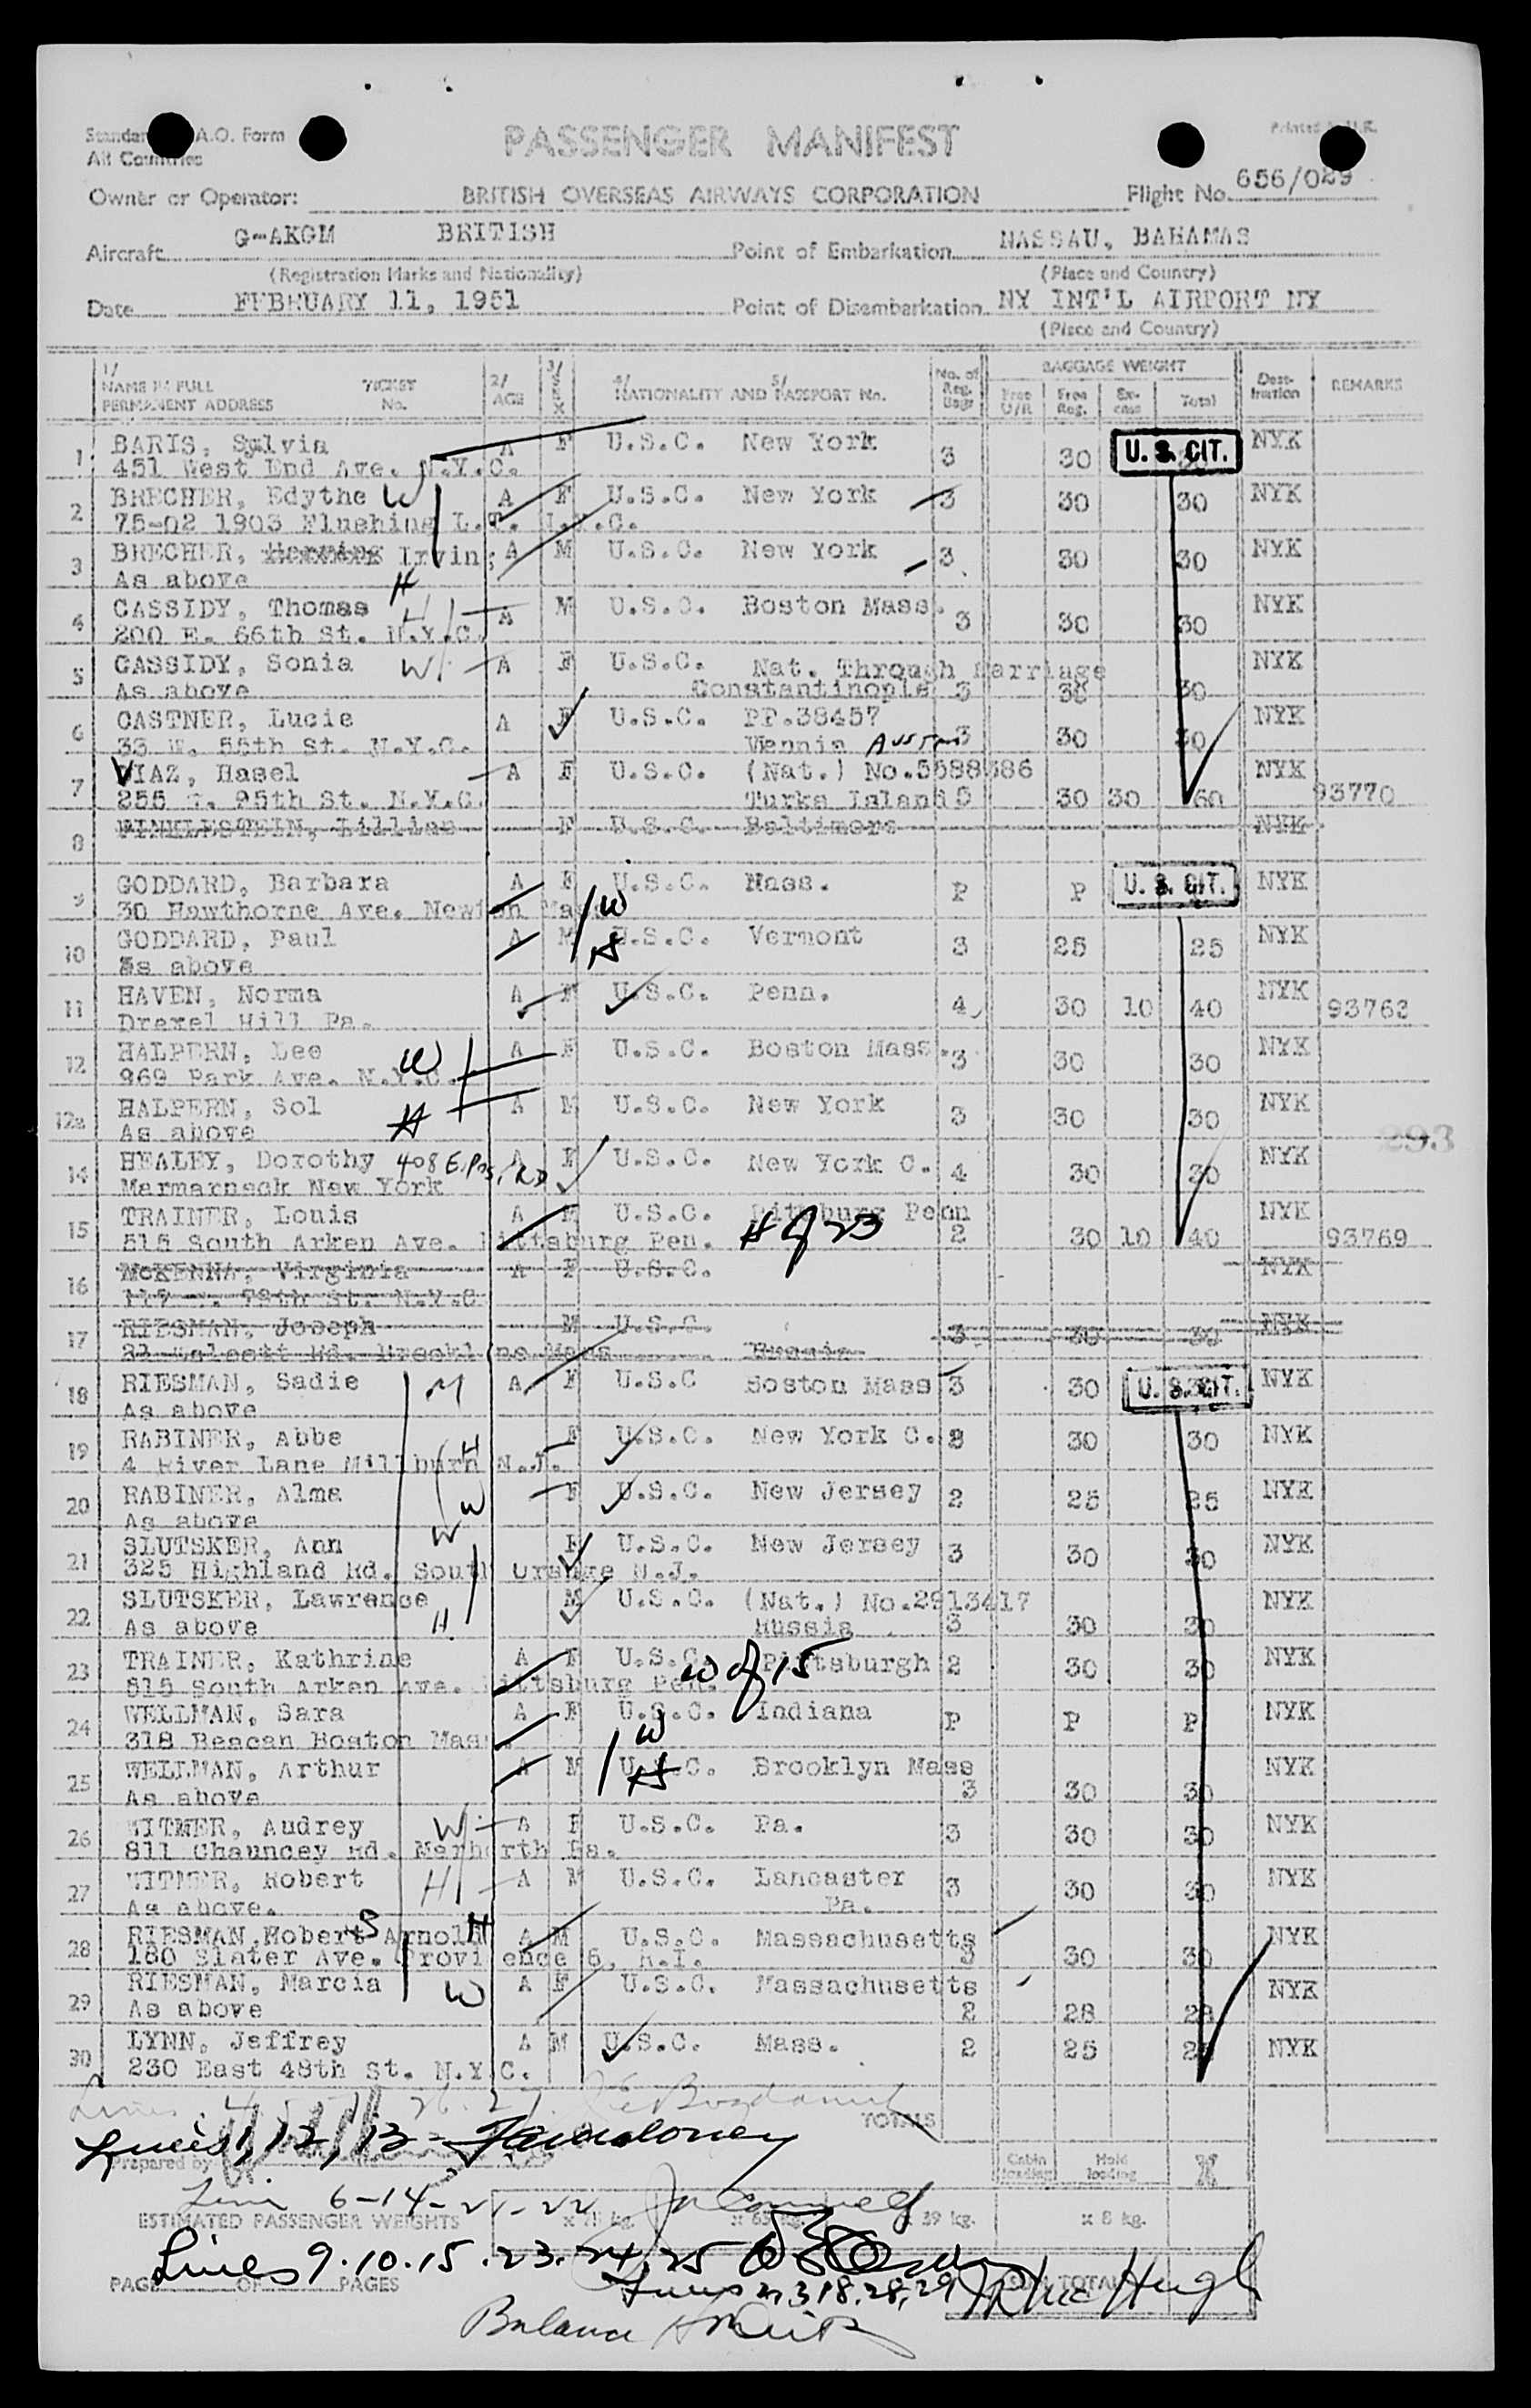 PASSENGER MANIFEST
A.O. Form
All Countries
Printed in U.K.
Owner or Operator: BRITISH OVERSEAS AIRWAYS CORPORATION Flight No. 656/029
Aircraft G-AKGM BRITISH Point of Embarkation NASSAU, BAHAMAS
(Registration Marks and Nationality) (Place and Country)
Date FEBRUARY 11, 1951 Point of Disembarkation NY INT'L AIRPORT NY
(Place and Country)
1/ NAME IN FULL TICKET 2/ 3/ 4/ 5/ No. of BAGGAGE WEIGHT Dest-
PERMANENT ADDRESS No. AGE SEX NATIONALITY AND PASSPORT No. Reg. Bags Free U/R Free Reg. Ex-cess Total ination REMARKS
1 BARIS, Sylvia A F U.S.C. New York 3 30 U.S. CIT. NYK
451 West End Ave. N.Y.C.
2 BRECHER, Edythe W A F U.S.C. New York 3 30 30 NYK
75-02 1903 Flushing L.I. N.Y.C.
3 BRECHER, Irving A M U.S.C. New York 3 30 30 NYK
As above H
4 CASSIDY, Thomas H A M U.S.C. Boston Mass. 3 30 30 NYK
200 E. 66th St. N.Y.C.
5 CASSIDY, Sonia W A F U.S.C. Nat. Through Marriage NYK
As above Constantinople 3 30 30
6 CASTNER, Lucie A F U.S.C. PP.38457 NYK
33 W. 55th St. N.Y.C. Viennia 3 30 30
7 DIAZ, Hasel A F U.S.C. (Nat.) No.5588386 NYK
255 W. 95th St. N.Y.C. Turks Island 5 30 30 60 93770
8 FINKLESTEIN, Lillian F U.S.C. Baltimore NYK
9 GODDARD, Barbara A F U.S.C. Mass. P P U.S. CIT. NYK
30 Hawthorne Ave. Newton Mass W
10 GODDARD, Paul A M U.S.C. Vermont 3 25 25 NYK
As above H
11 HAVEN, Norma A F U.S.C. Penn. 4 30 10 40 NYK 93763
Drexel Hill Pa.
12 HALPERN, Lee W A F U.S.C. Boston Mass. 3 30 30 NYK
969 Park Ave. N.Y.C.
12a HALPERN, Sol A M U.S.C. New York 3 30 30 NYK
As above H
293
14 HEALEY, Dorothy 408 E. A F U.S.C. New York C. 4 30 30 NYK
Marmarneck New York
15 TRAINER, Louis A M U.S.C. Pittsburg Penn NYK
515 South Arken Ave. Pittsburg Pen. H of 23 2 30 10 40 93769
16 McKENNA, Virginia A F U.S.C. NYK
117 W. 79th St. N.Y.C
17 RIESMAN, Joseph M U.S.C. 3 30 30 NYK
Brookline Mass Russia
18 RIESMAN, Sadie M A F U.S.C Boston Mass 3 30 U.S. CIT. NYK
As above
19 RABINER, Abbe H F U.S.C. New York C. 3 30 30 NYK
4 River Lane Millburn N.J.
20 RABINER, Alma W F U.S.C. New Jersey 2 25 25 NYK
As above
21 SLUTSKER, Ann W F U.S.C. New Jersey 3 30 30 NYK
325 Highland Rd. South Orange N.J.
22 SLUTSKER, Lawrence M U.S.C. (Nat.) No.2913417 NYK
As above H Russia 3 30 30
23 TRAINER, Kathrine A F U.S.C. Pittsburgh 2 30 30 NYK
515 South Arken Ave. Pittsburg Pen. W of 15
24 WELLMAN, Sara A F U.S.C. Indiana P P P NYK
318 Beacan Boston Mass. W
25 WELLMAN, Arthur A M U.S.C. Brooklyn Mass NYK
As above H 3 30 30
26 WITMER, Audrey W A F U.S.C. Pa. 3 30 30 NYK
811 Chauncey Rd. Marborth Pa.
27 WITMER, Robert H A M U.S.C. Lancaster 3 30 30 NYK
As above. Pa.
28 RIESMAN, Robert Arnold S H A M U.S.C. Massachusetts NYK
180 Slater Ave. Providence 6, R.I. 3 30 30
29 RIESMAN, Marcia W A F U.S.C. Massachusetts NYK
As above 2 28 28
30 LYNN, Jeffrey A M U.S.C. Mass. 2 25 25 NYK
230 East 48th St. N.Y.C.
TOTALS
Lines 1, 12, 13
Prepared by Cabin loading Hold loading
6-14-21-22
ESTIMATED PASSENGER WEIGHTS x 65 kg. x 39 kg. x 8 kg.
Lines 9.10.15.23.24.25
PAGE OF PAGES TOTAL
Lines 2, 3, 18, 28, 29
Balance